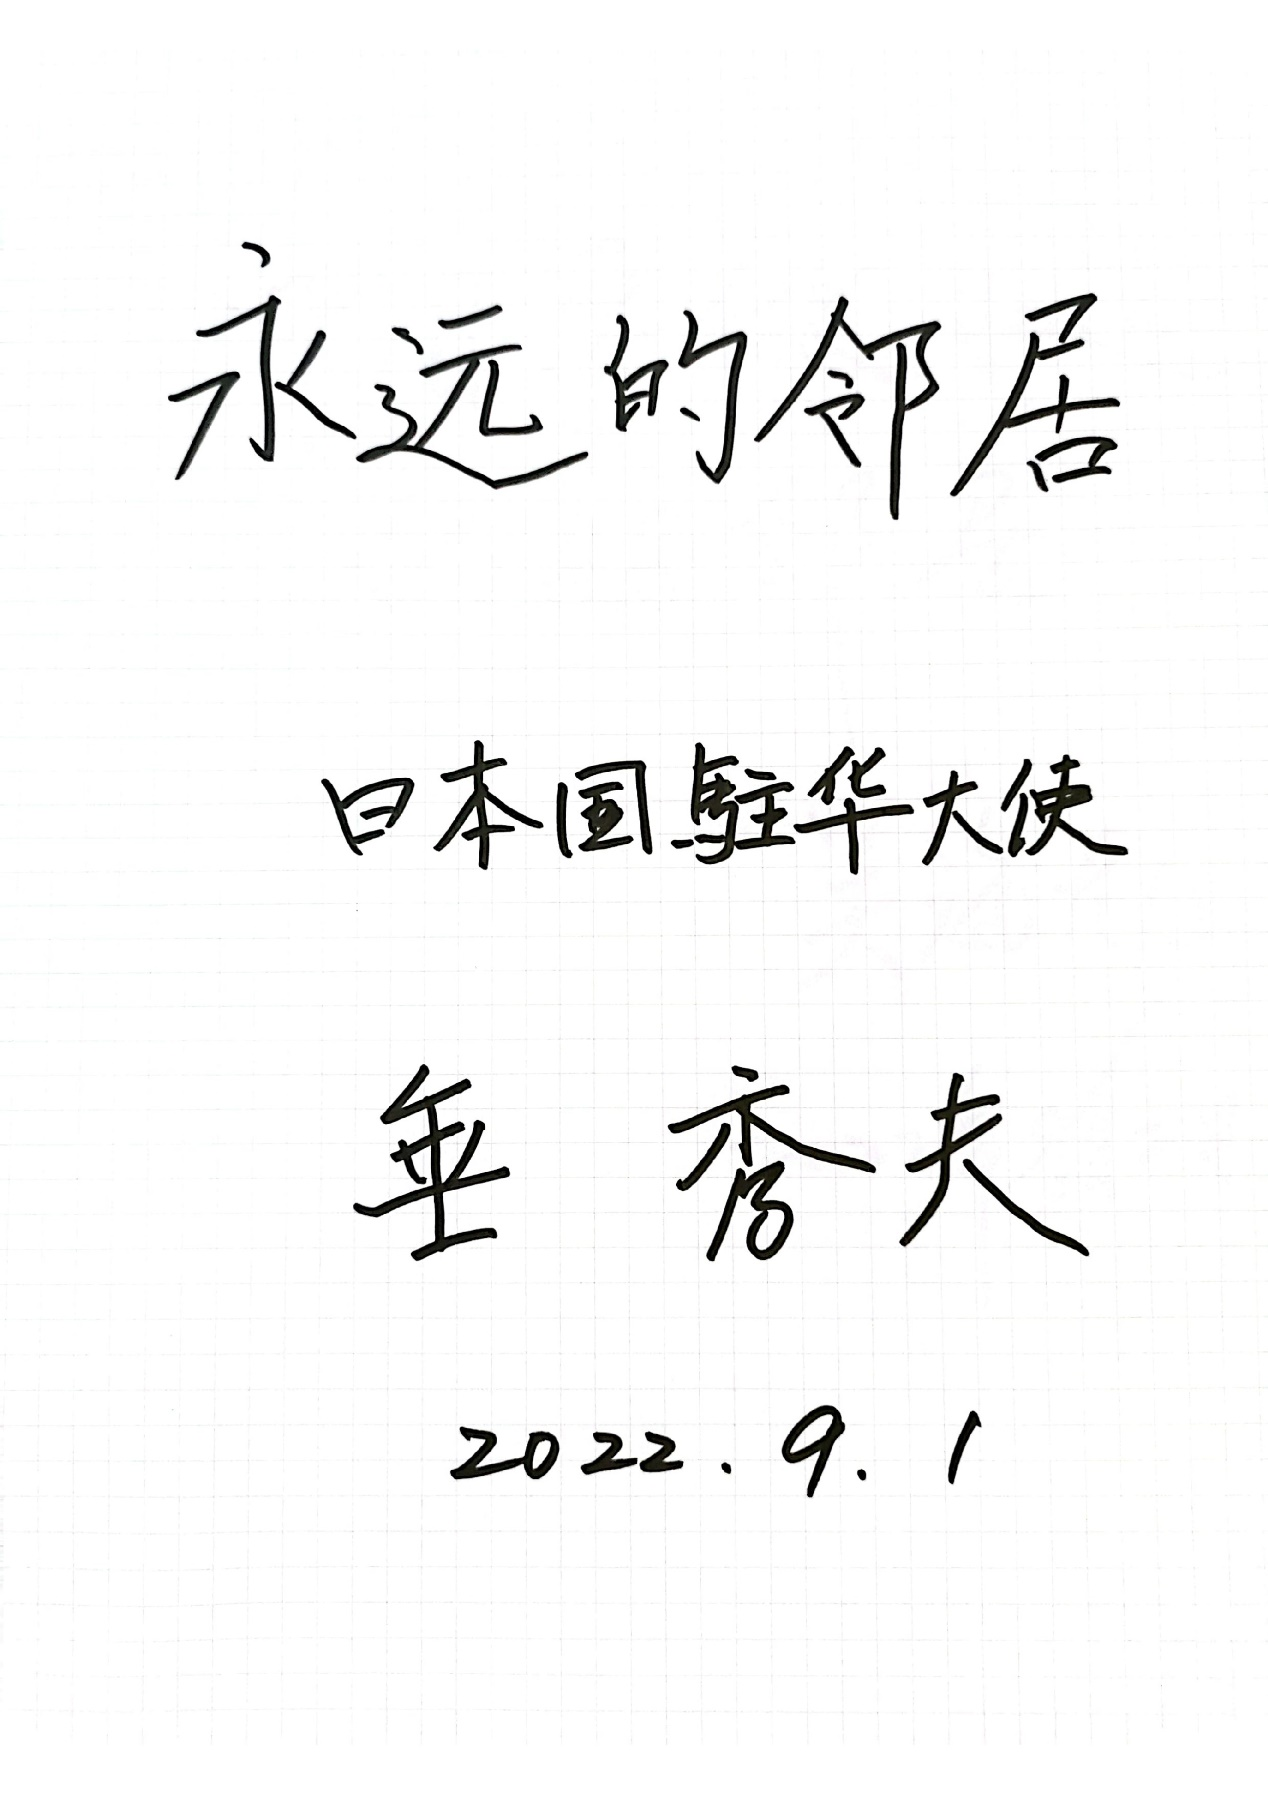 永远的邻居
日本国駐华大使
垂 秀夫
2022.9.1